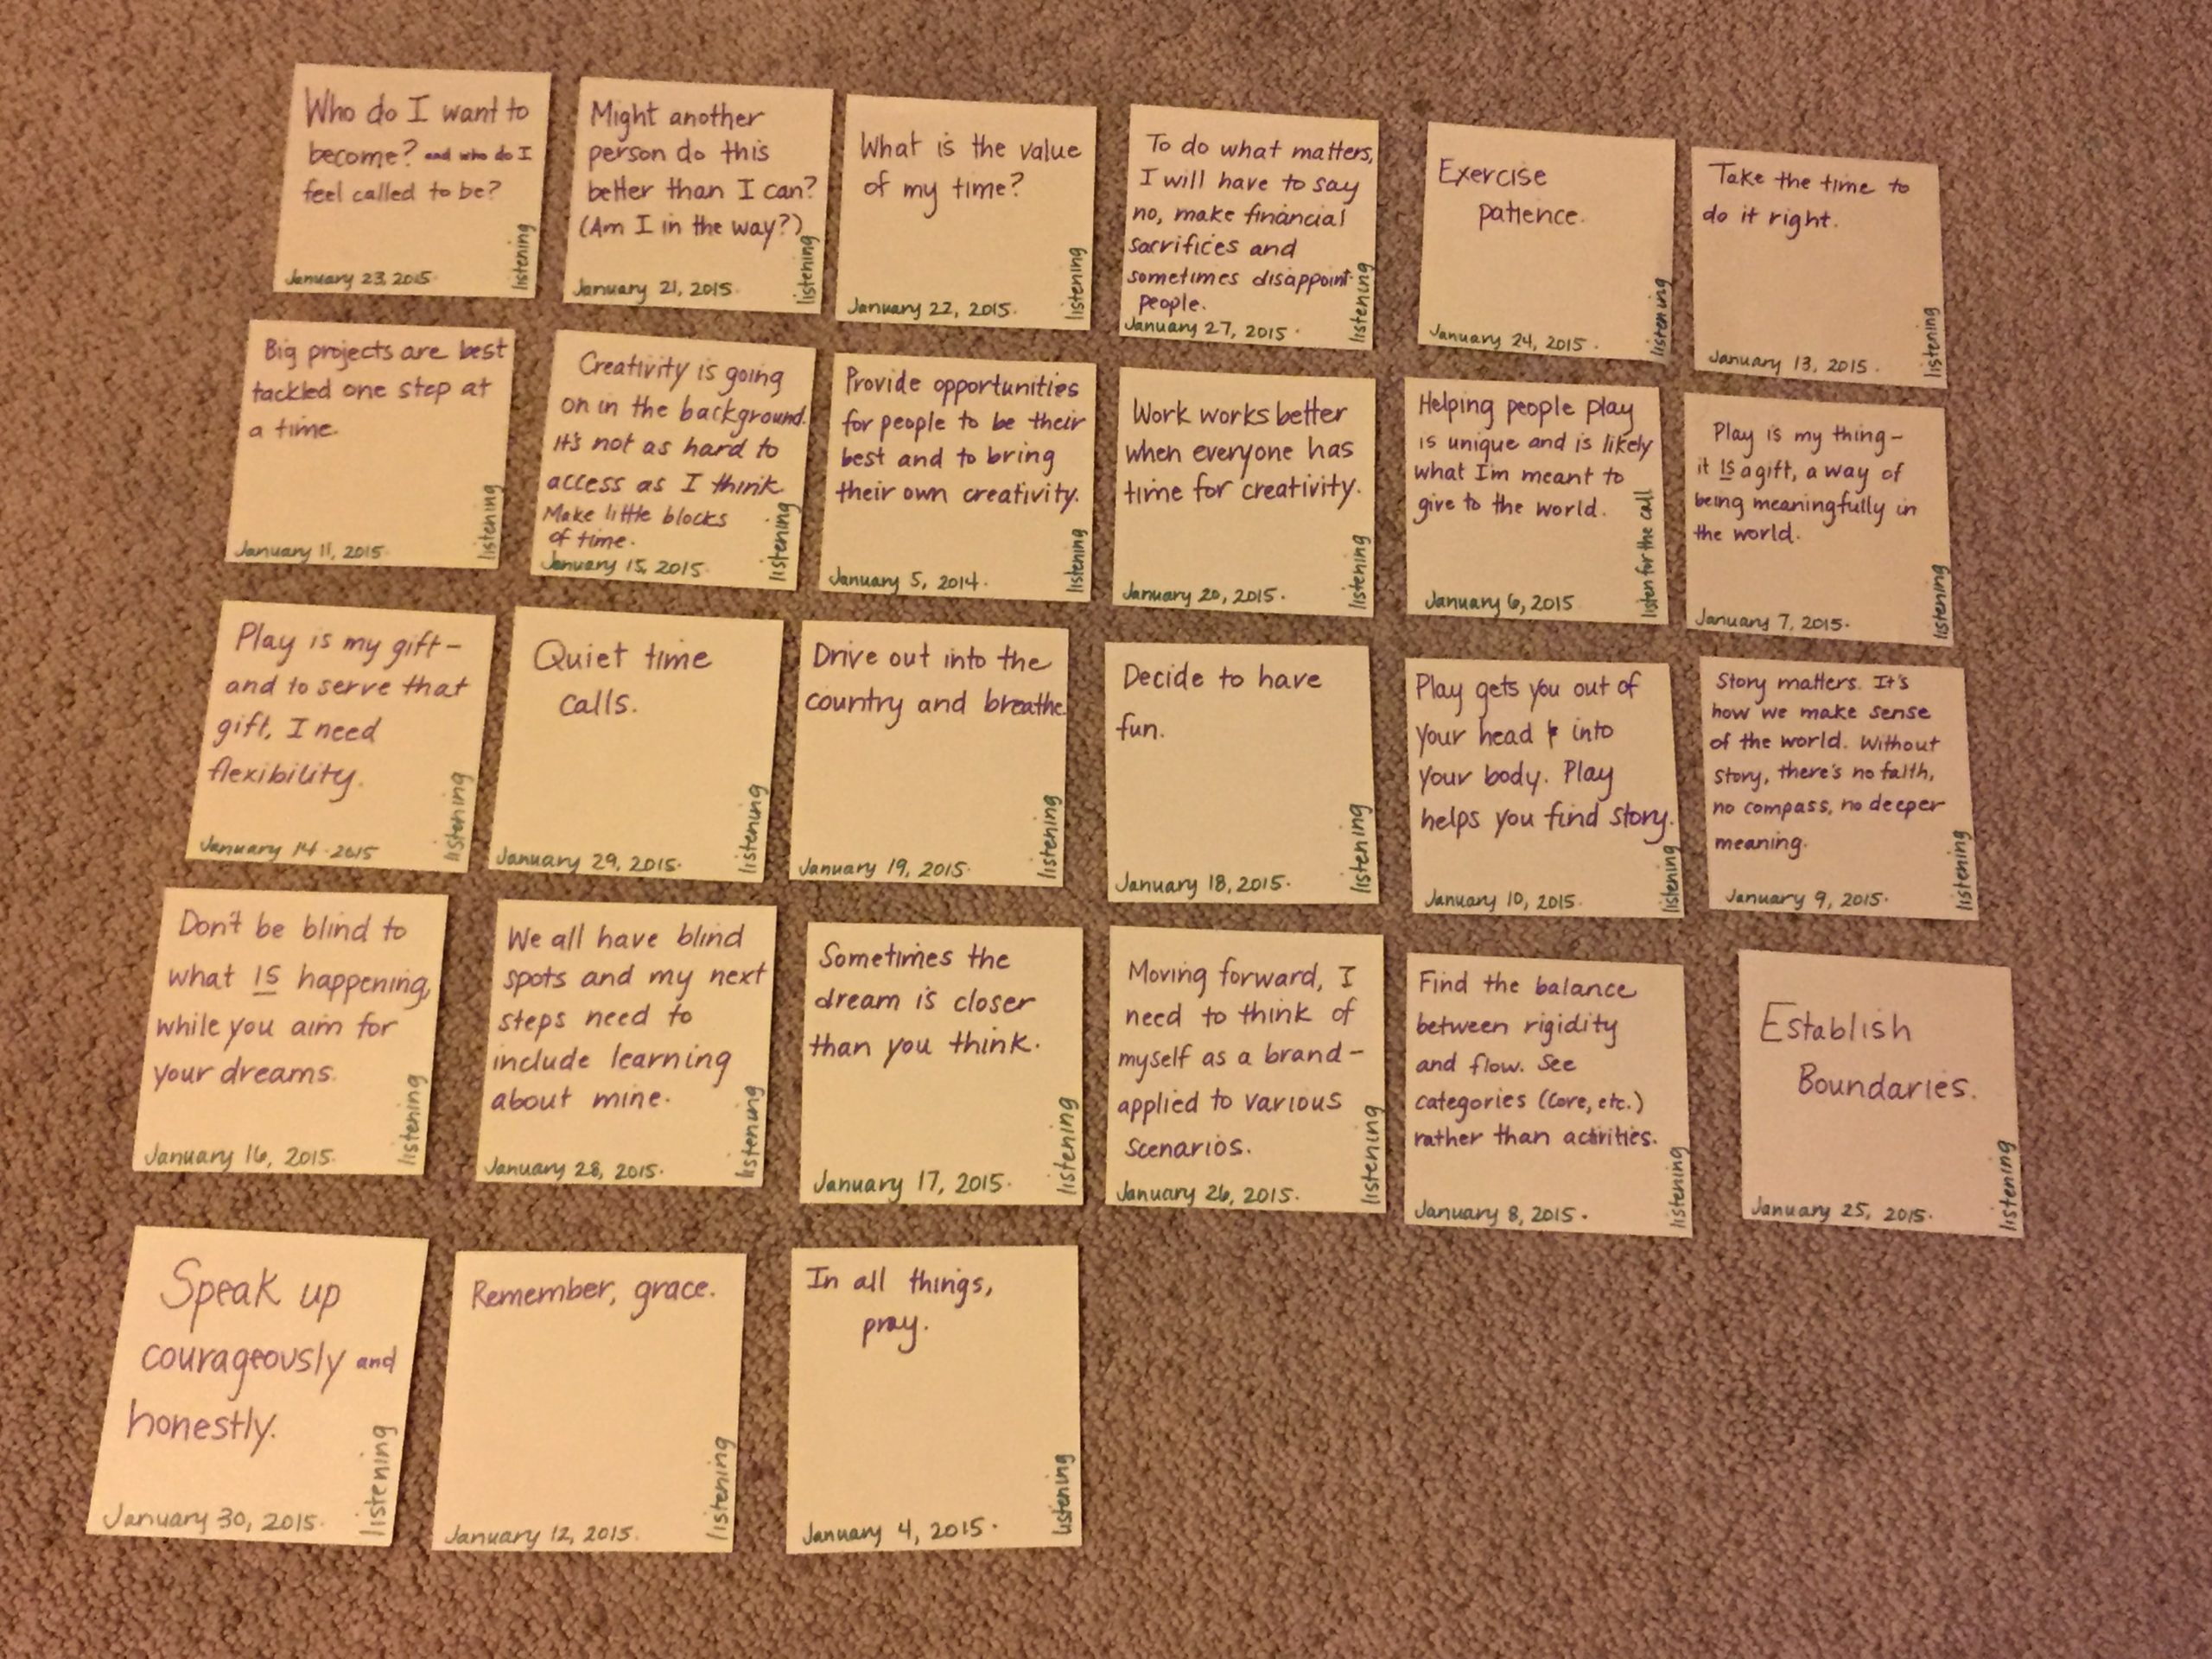 Who do I want to
become? and who do I
feel called to be?
January 23, 2015.
listening
Might another
person do this
better than I can?
(Am I in the way?)
January 21, 2015.
listening
What is the value
of my time?
January 22, 2015.
listening
To do what matters,
I will have to say
no, make financial
sacrifices and
sometimes disappoint
people.
January 27, 2015.
listening
Exercise
patience.
January 24, 2015.
listening
Take the time to
do it right.
January 13, 2015.
listening
Big projects are best
tackled one step at
a time.
January 11, 2015.
listening
Creativity is going
on in the background.
It's not as hard to
access as I think.
Make little blocks
of time.
January 15, 2015.
listening
Provide opportunities
for people to be their
best and to bring
their own creativity.
January 5, 2014.
listening
Work works better
when everyone has
time for creativity.
January 20, 2015.
listening
Helping people play
is unique and is likely
what I'm meant to
give to the world.
January 6, 2015
listen for the call
Play is my thing-
it IS a gift, a way of
being meaningfully in
the world.
January 7, 2015.
listening
Play is my gift-
and to serve that
gift, I need
flexibility.
January 14. 2015
listening
Quiet time
calls.
January 29, 2015.
listening
Drive out into the
country and breathe.
January 19, 2015.
listening
Decide to have
fun.
January 18, 2015.
listening
Play gets you out of
your head & into
your body. Play
helps you find story.
January 10, 2015.
listening
Story matters. It's
how we make sense
of the world. Without
story, there's no faith,
no compass, no deeper
meaning.
January 9, 2015.
listening
Don't be blind to
what IS happening,
while you aim for
your dreams.
January 16, 2015.
listening
We all have blind
spots and my next
steps need to
include learning
about mine.
January 28, 2015.
listening
Sometimes the
dream is closer
than you think.
January 17, 2015.
listening
Moving forward, I
need to think of
myself as a brand-
applied to various
scenarios.
January 26, 2015.
listening
Find the balance
between rigidity
and flow. See
categories (Core, etc.)
rather than activities.
January 8, 2015.
listening
Establish
Boundaries.
January 25, 2015.
listening
Speak up
courageously and
honestly.
January 30, 2015.
listening
Remember, grace.
January 12, 2015.
listening
In all things,
pray.
January 4, 2015.
listening